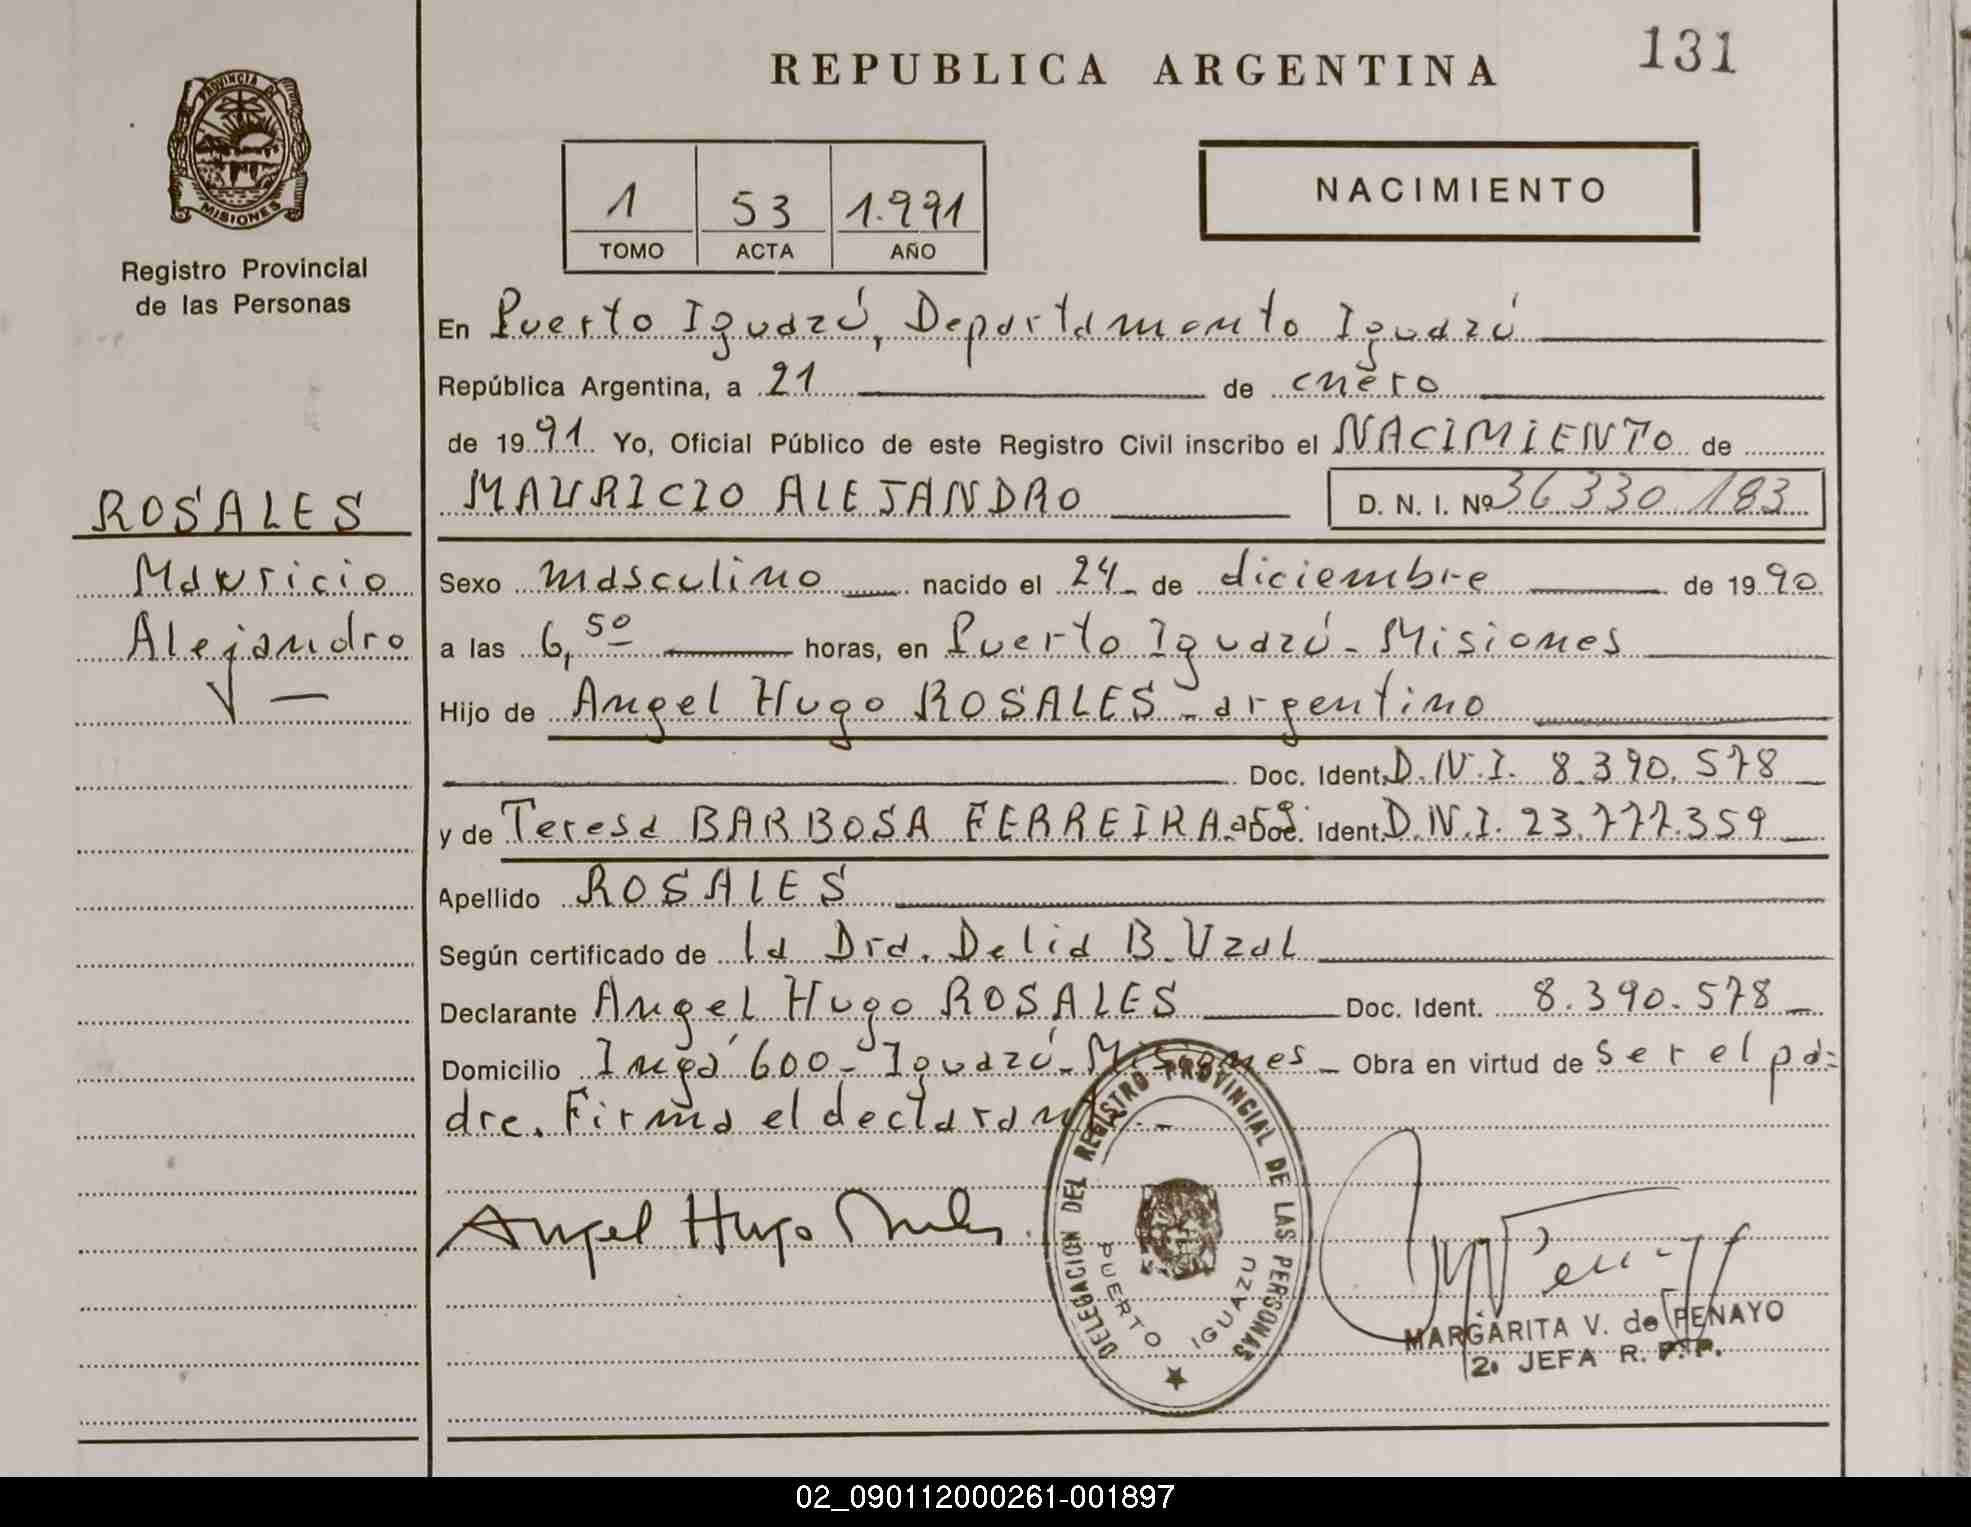 131
REPUBLICA ARGENTINA
PROVINCIA DE
MISIONES
Registro Provincial
de las Personas
1 53 1.991
TOMO ACTA AÑO
NACIMIENTO
En Puerto Iguazú, Departamento Iguazú
República Argentina, a 21 de enero
de 1991 Yo, Oficial Público de este Registro Civil inscribo el NACIMIENTO de
MAURICIO ALEJANDRO D. N. I. Nº 36 330 183
ROSALES
Mauricio
Alejandro
Sexo masculino nacido el 24 de diciembre de 1990
a las 6,50 horas, en Puerto Iguazú - Misiones
Hijo de Angel Hugo ROSALES - argentino
Doc. Ident. D.N.I. 8.390.578
y de Teresa BARBOSA FERREIRA Doc. Ident. D.N.I. 23.777.359
Apellido ROSALES
Según certificado de la Dra. Delia B. Uzal
Declarante Angel Hugo ROSALES Doc. Ident. 8.390.578
Domicilio Ingá 600 - Iguazú - Misiones Obra en virtud de ser el pa=
dre. Firma el declarante.-
Angel Hugo
DELEGACION DEL REGISTRO PROVINCIAL DE LAS PERSONAS
PUERTO IGUAZU
MARGARITA V. de PENAYO
2. JEFA R. P. P.
02_090112000261-001897